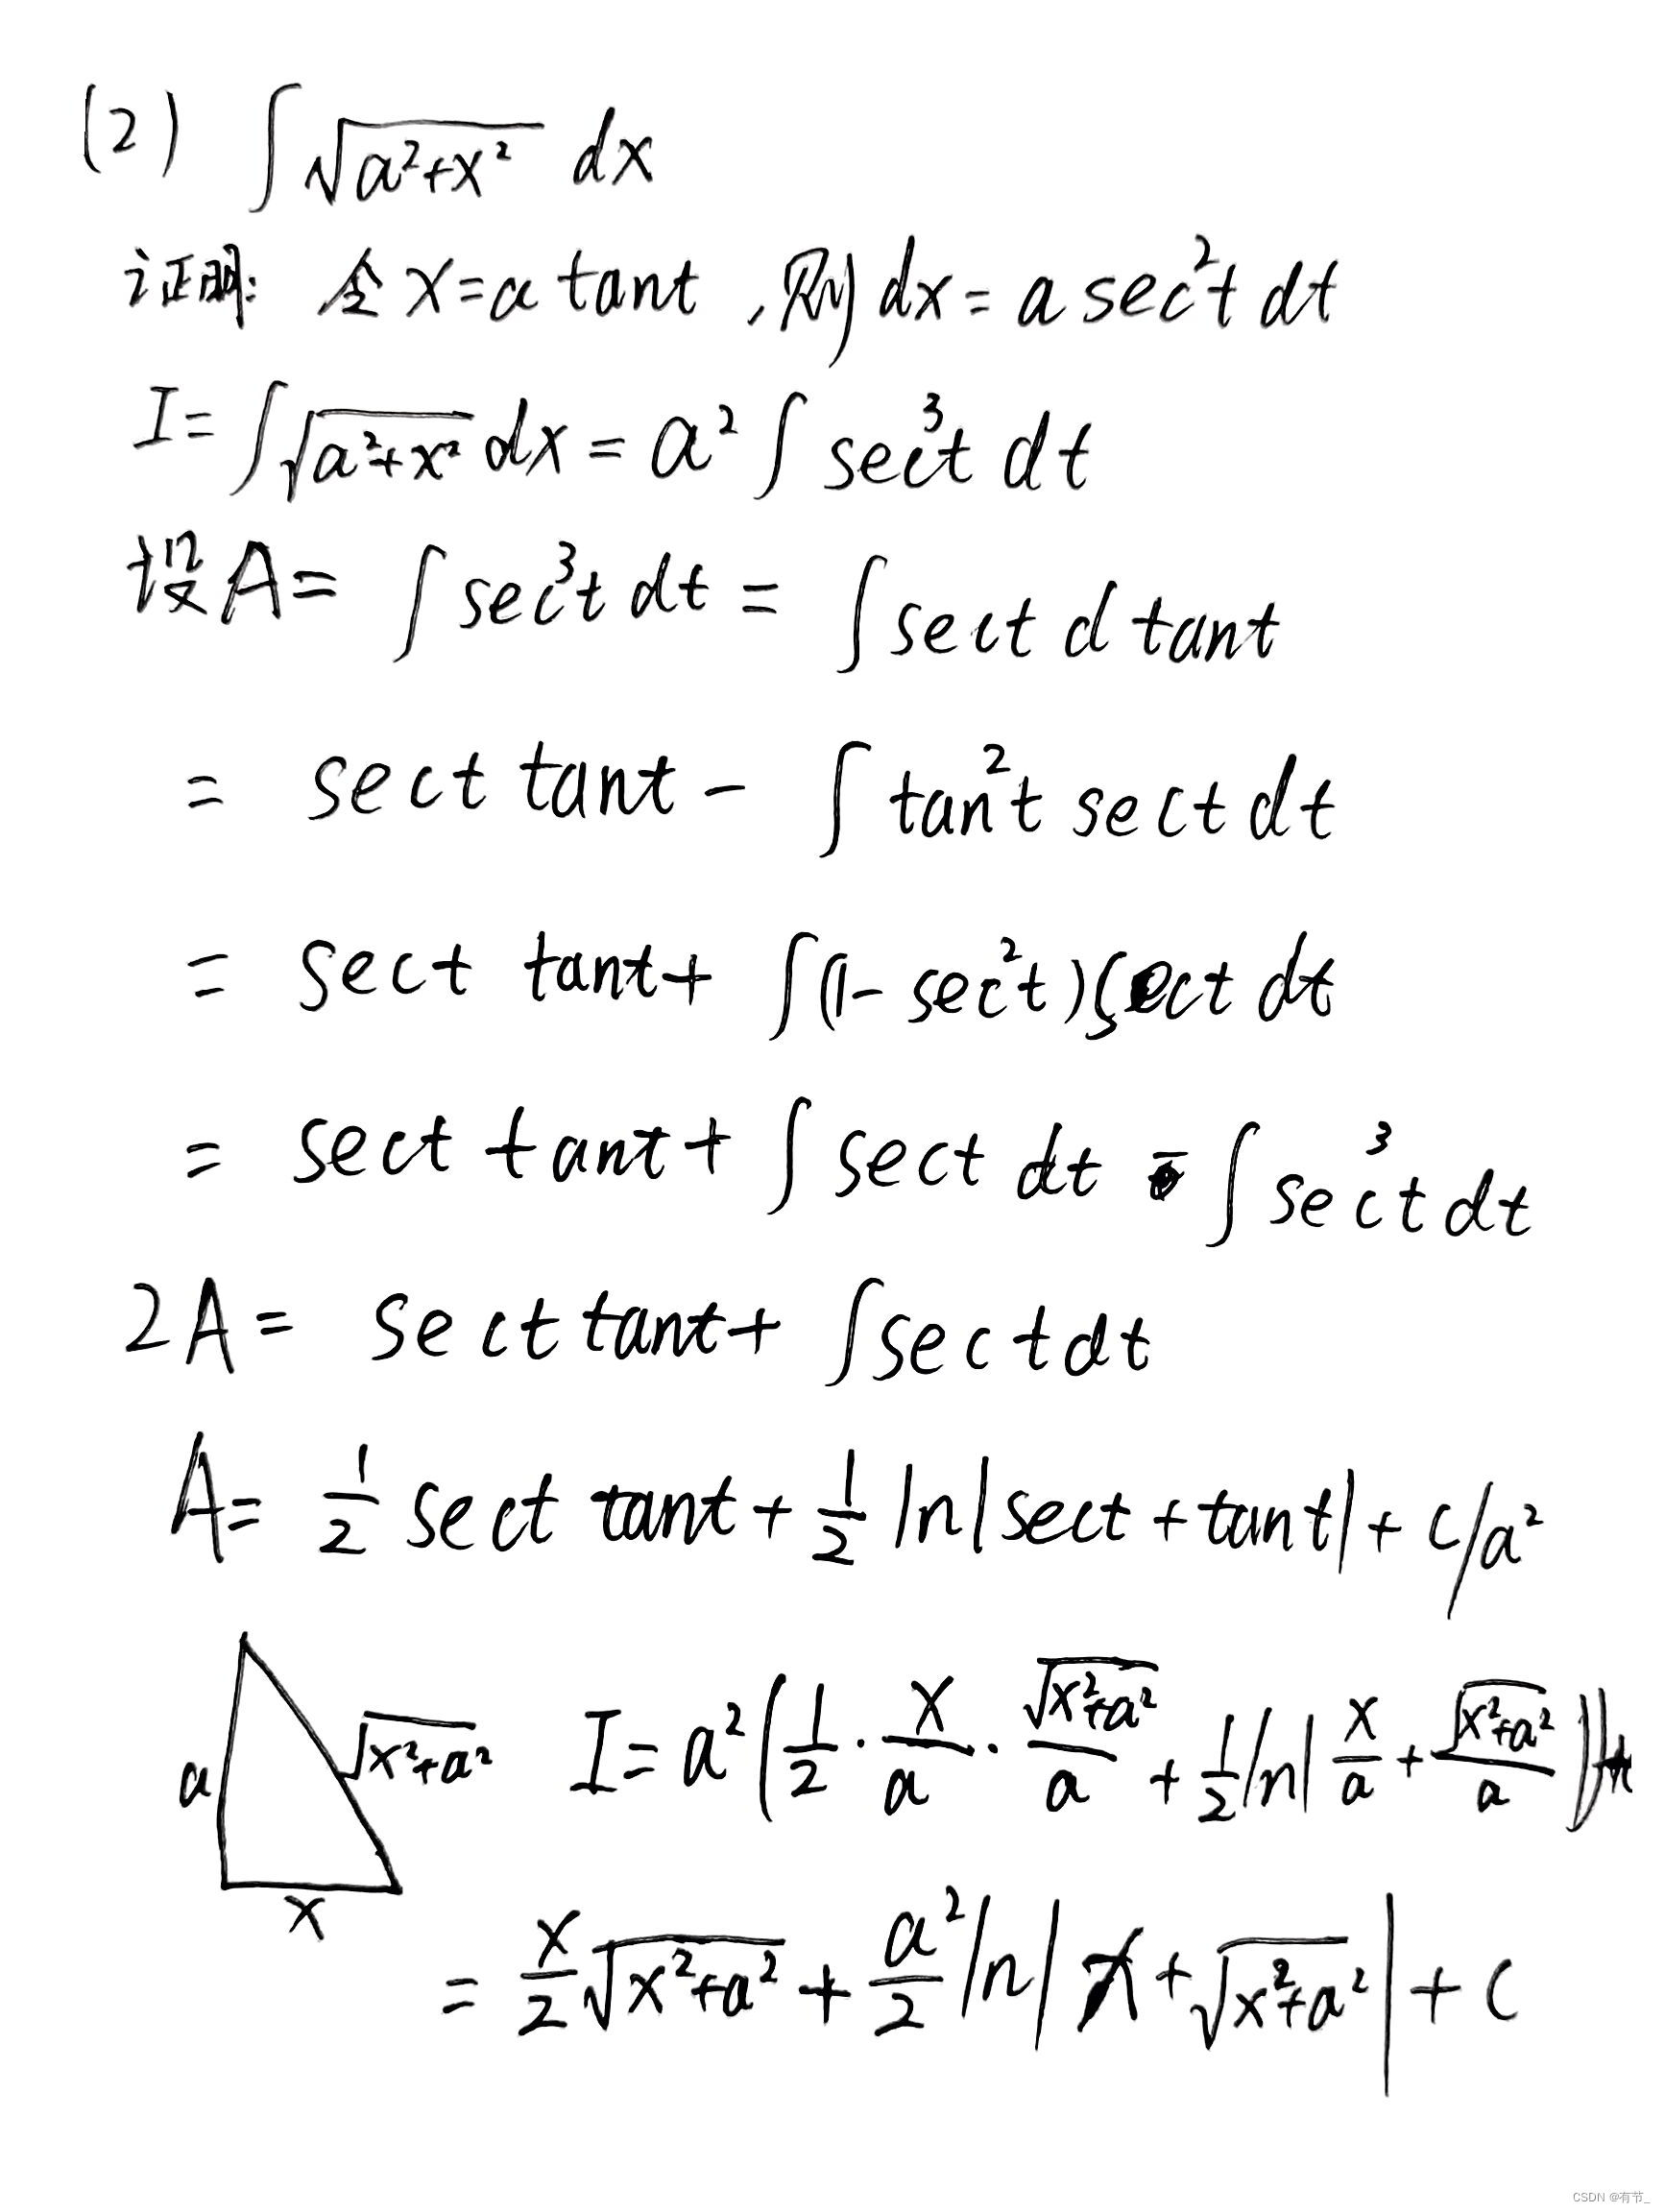 (2) ∫√(a²+x²) dx
证明: 令 x=a tant ,则 dx= a sec²t dt
I= ∫√(a²+x²) dx = a² ∫ sec³t dt
设 A= ∫ sec³t dt = ∫ sect d tant
= sect tant - ∫ tan²t sect dt
= sect tant + ∫ (1- sec²t) sect dt
= sect tant + ∫ sect dt - ∫ sec³t dt
2A= sect tant + ∫ sect dt
A= 1/2 sect tant + 1/2 ln|sect + tant| + c/a²
a √(x²+a²) x
I= a²(1/2 · x/a · √(x²+a²)/a + 1/2 ln|x/a + √(x²+a²)/a|)
= x/2 √(x²+a²) + a²/2 ln|x+√(x²+a²)| + c
CSDN @有节_